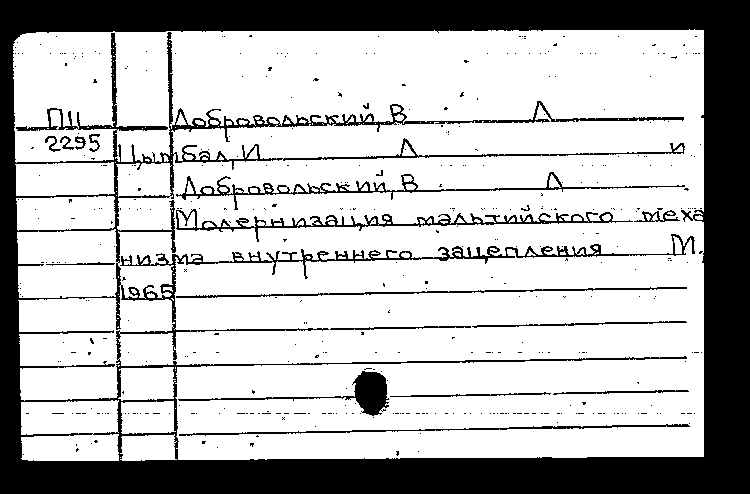 П11 Добровольский, В Л
2295 Цымбал, И Л и
Добровольский, В Л
Модернизация мальтийского меха
низма внутреннего зацепления М.,
1965